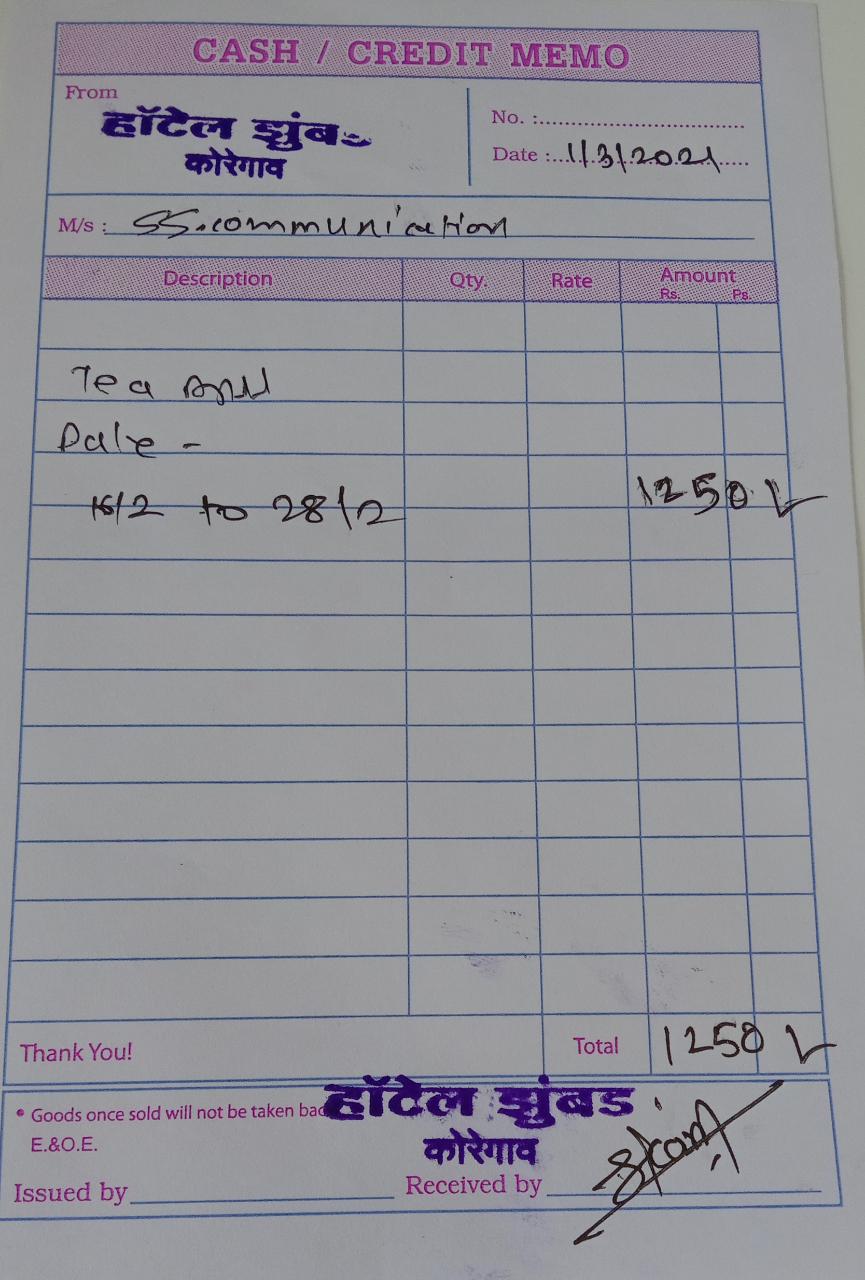 CASH / CREDIT MEMO
From
हॉटेल झुंब
कोरेगाव
No. :
Date : 1/3/2021
M/s : SS.communication
Description Qty. Rate Amount
Rs. Ps.
Tea
Date -
to 28/2 1250
Thank You! Total 1250
• Goods once sold will not be taken bac
हॉटेल झुंबड
E.&O.E.
कोरेगाव
Issued by Received by